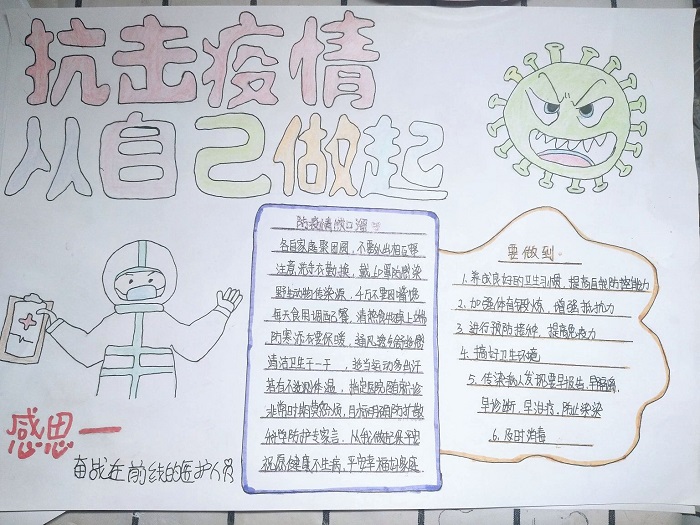 抗击疫情
从自己做起
防疫情顺口溜
各自家庭聚团圆，不要外出相互聚
注意洗手衣勤换，戴口罩防感染
野生动物传染源，千万不要因嘴馋
每天食用调配餐，清热食出锅上端
防寒添衣要保暖，
清洁卫生干一干，适当运动多出汗
若有不测剧体温，指定医院随前诊
非常时期莫添烦，目标明确防扩散
科学防护专家言，从我做起保平安
祝愿健康不生病，平安幸福如家庭
要做到
1.养成良好的卫生习惯，提高自我防控能力
2.加强体育锻炼，增强抵抗力
3.进行预防接种，提高免疫力
4.搞好卫生环境
5.传染病人发现要早报告，早隔离，
早诊断，早治疗，防止传染
6.及时消毒
感恩一
奋战在前线的医护人员